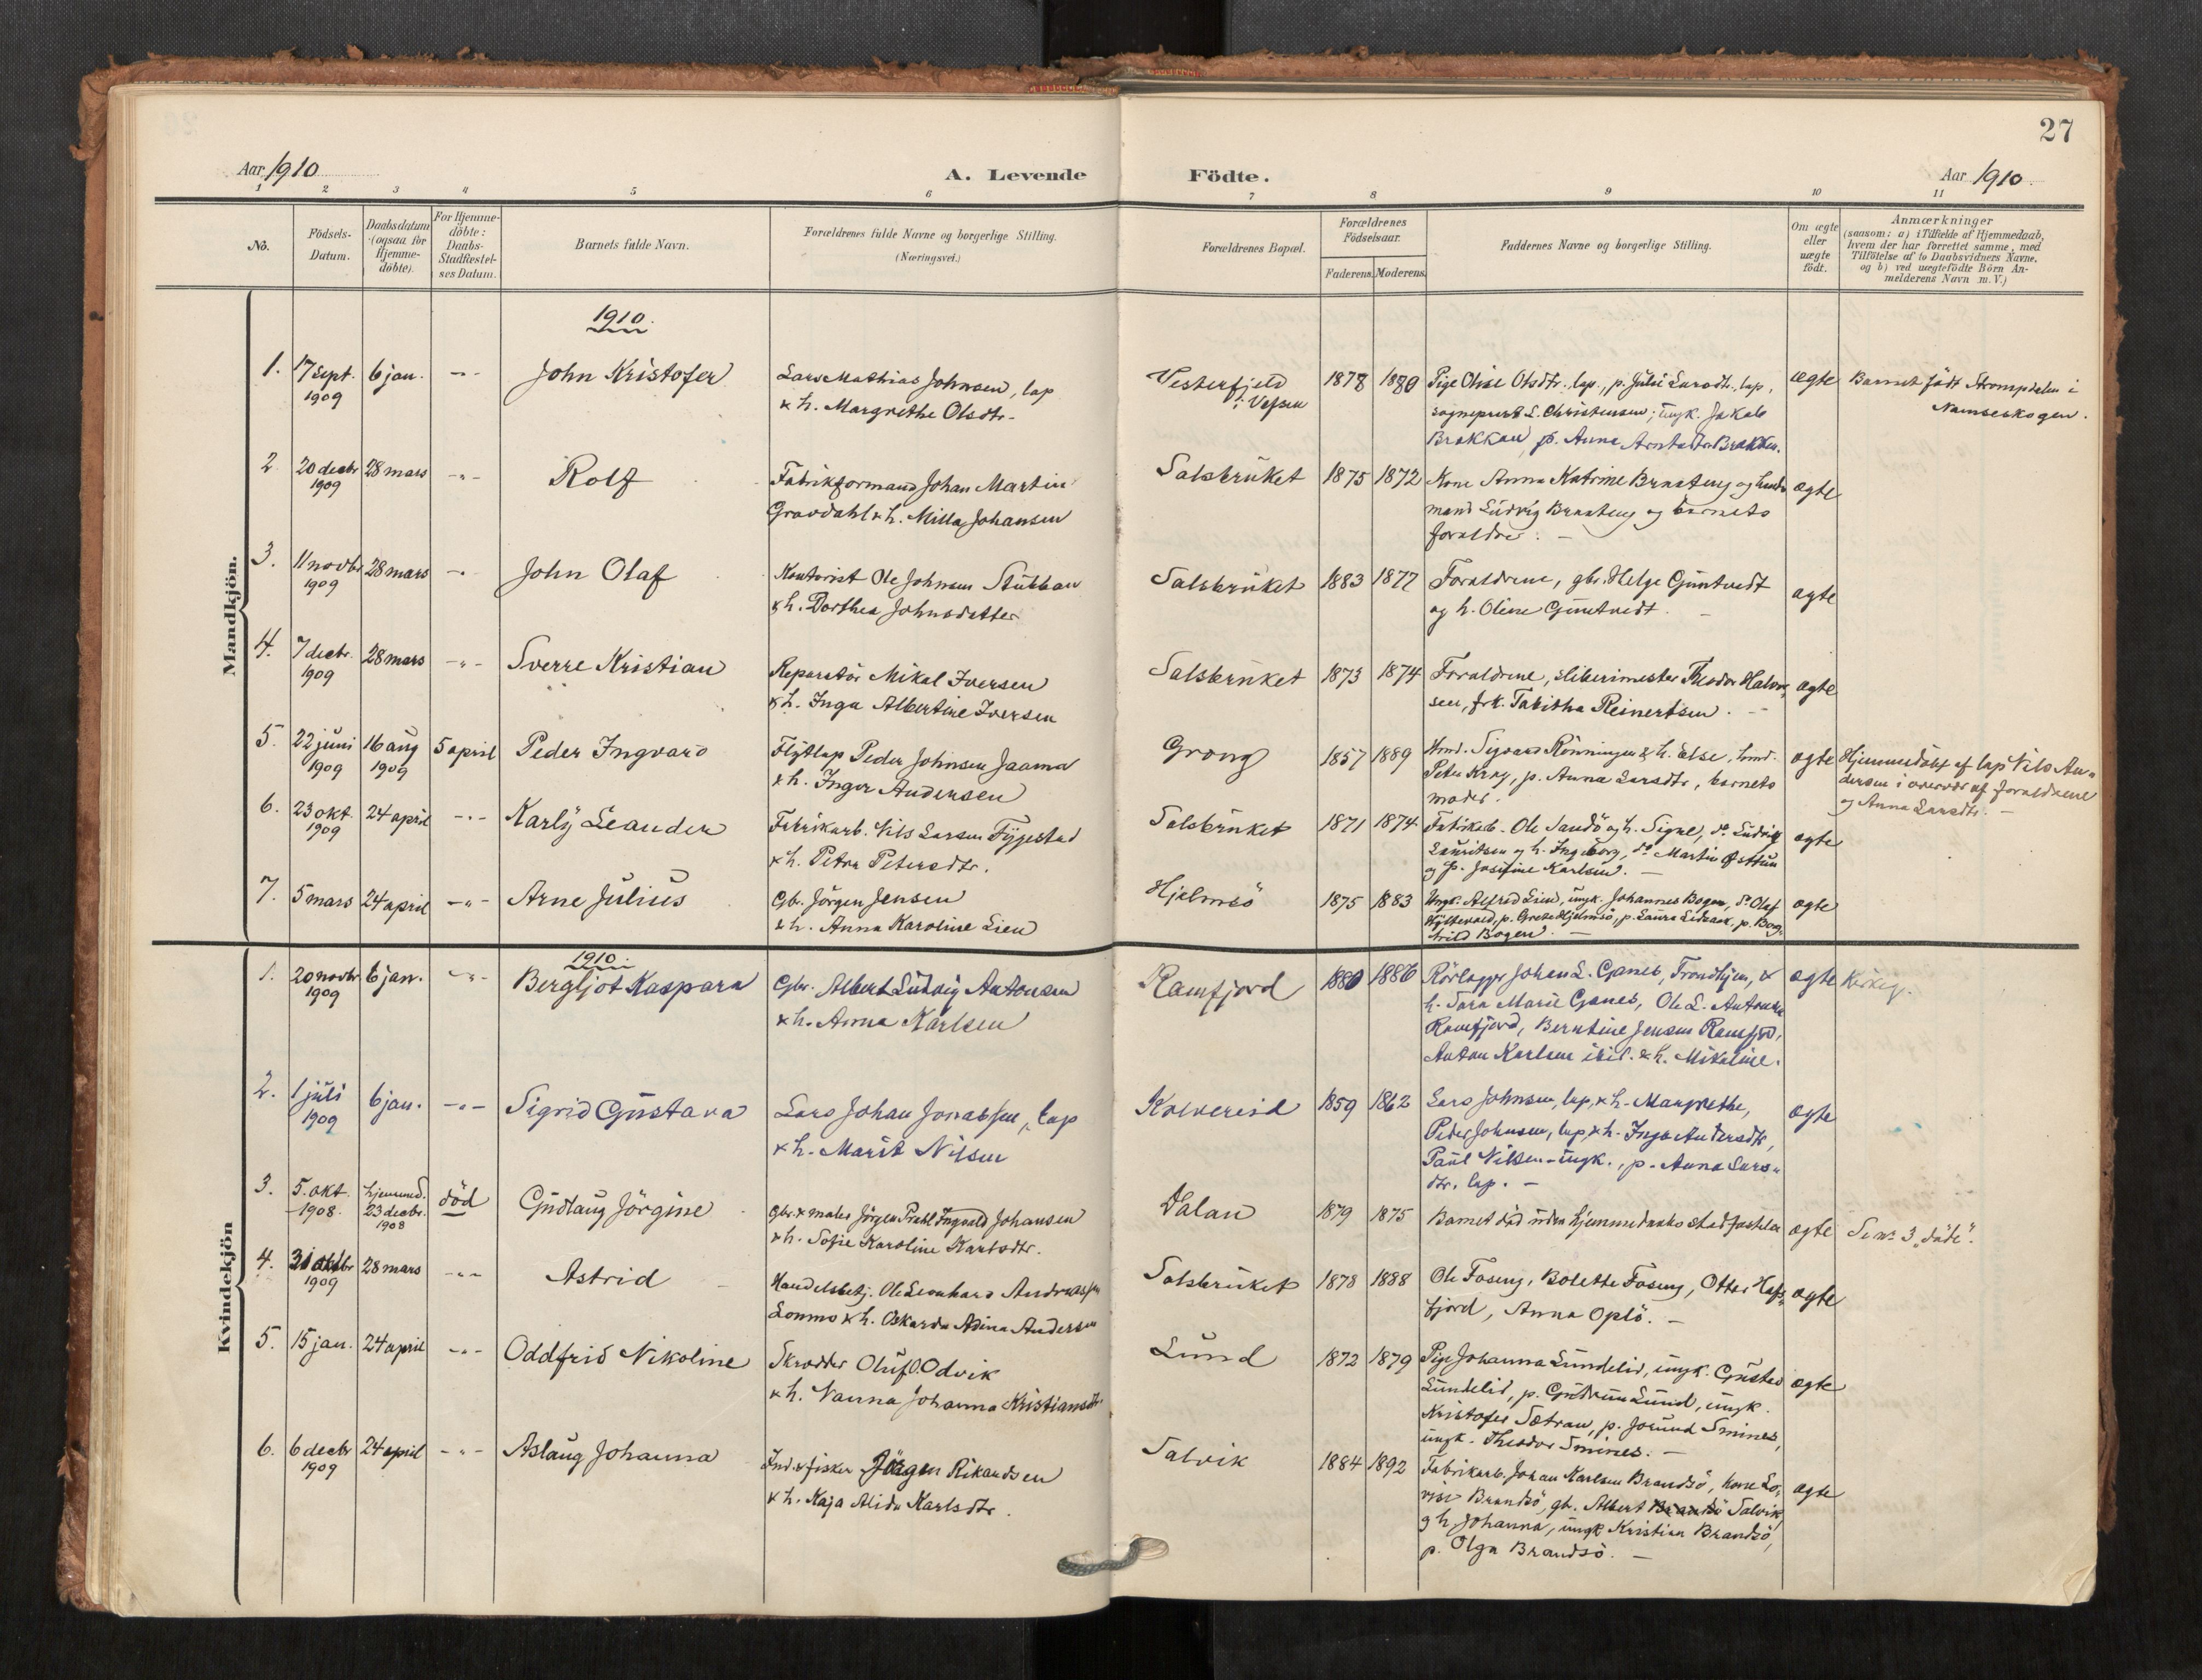 27
Aar 1910
A. Levende Födte.
Aar 1910
1 2 3 4 5 6 7 8 9 10 11
No.
Födsels-
Datum.
Daabsdatum
(ogsaa for
Hjemme-
döbte).
For Hjemme-
döbte:
Daabs-
Stadfæstel-
ses Datum.
Barnets fulde Navn.
Forældrenes fulde Navne og borgerlige Stilling.
(Næringsvei.)
Forældrenes Bopæl.
Forældrenes
Födselsaar.
Faderens. Moderens.
Faddernes Navne og borgerlige Stilling.
Om ægte
eller
uægte
födt.
Anmærkninger
(saasom: a) i Tilfælde af Hjemmedaab,
hvem der har forrettet samme, med
Tilföielse af to Daabsvidners Navne.
og b) ved uægtefödte Börn An-
melderens Navn m. V.)
Mandkjön.
1910.
1. 17 sept. 1909
6 jan.
-"-
John Kristofer
Lars Mathias Johnsen, lap
& h. Margrethe Olsdtr.
Vesterfjeld
i Vefsen
1878 1880
Pige Olise Olsdtr. lap., p. Julie Larsdtr. lap,
sogneprest L. Christensen; ungk. Jakob
Brekken, p. Anna Brekken.
ægte
Barnet födt Strompdalen i
Namsskogen.
2 20 decbr 1909
28 mars
-"-
Rolf
Fabrikformand Johan Martin
Gravdahl & h. Milla Johansen
Salsbruket
1875 1872
Kone Anna Katrine Braateng og
mand Ludvig Braateng og barnets
forældre. -
ægte
3. 11 novbr 1909
28 mars
-"-
John Olaf
Kontorist Ole Johnsen Stubban
& h. Dorthea Johnsdatter
Salsbruket
1883 1877
Forældrene, gbr. Helge Guntvedt
og h. Oline Guntvedt. -
ægte
4. 7 decbr. 1909
28 mars
-"-
Sverre Kristian
Reparatör Mikal Iversen
& h. Inga Albertine Iversen
Salsbruket
1873 1874
Forældrene, sliberimester Theodor Halvor-
sen, frk. Tabitha Reinertsen. -
ægte
5. 22 juni 1909
16 aug 1909
5 april
Peder Ingvard
Flytlap Peder Johnsen Jaama
& h. Inger Andersen
Grong
1857 1889
Hmd. Sigvard Rönningen & h. Else, hmd.
Peter Krag, p. Anna Larsdtr, barnets
moder.
ægte
Hjemmedöbt af lap Nils An-
dersen i overvær af forældrene
og Anna Larsdtr. -
6. 23 okt. 1909
24 april
-"-
Karly Leander
Fabrikarb. Nils Larsen Fyjestad
& h. Petra Petersdtr.
Salsbruket
1871 1874
Fabrikarb. Ole Sandö og h. Signe, do. Ludvig
Lauritsen og h. Ingeborg, do Martin
og p. Josefine Karlsen. -
ægte
7. 5 mars
24 april
-"-
Arne Julius
Gb. Jörgen Jensen
& h. Anna Karoline Lien
Hjelmsö
1875 1883
Ungk. Alfred Lien, ungk. Johannes Bogen, do Olaf
p. Grete Hjelmsö, p. Laura p. Bog-
hild Bogen. -
ægte
Kvindekjön
1910.
1. 20 novbr 1909
6 jan.
-"-
Bergljot Kaspara
Gbr. Albert Ludvig Antonsen
& h. Anna Karlsen
Ramfjord
1880 1886
Rörlægger Johan L. Ganes, Trondhjem, &
h. Sara Marie Ganes, Ole L. Antonsen
Ramfjord, Berntine Jensen Ramfjord,
Anton Karlsen ibid. & h. Mikaline.
ægte
2. 1 juli 1909
6 jan.
-"-
Sigrid Gustava
Lars Johan Jonassen, lap
& h. Marit Nilsen
Kolvereid
1859 1862
Lars Johnsen, lap, & h. Margrethe,
Peder Johnsen, lap, & h. Inger Andersdtr,
Paul Nilsen ungk., p. Anna Lars-
dtr. lap. -
ægte
3. 5. okt. 1908.
hjemmed. 23 decbr. 1908
död
Gudlaug Jörgine
Gbr. & maler Jörgen Prahl Ingvald Johansen
& h. Sofie Karoline Karlsdtr.
Valan
1879 1875
Barnet död uden hjemmedaabs stadfæstelse
ægte
Se nr. 3 "döde".
4. 31 oktbr 1909
28 mars
-"-
Astrid
Handelsbetj. Ole Leonhard Andreassen
Lommo & h. Oskarda Adina Andersen
Salsbruket
1878 1888
Ole Foseng, Bolette Foseng, Otter Hafs-
fjord, Anna Oplö. -
ægte
5. 15 jan.
24 april
-"-
Oddfrid Nikoline
Skrædder Oluf O. Odvik
& h. Nanna Johanna Kristiansdtr.
Lund
1872 1879
Pige Johanna Lundelid, ungk. Gustav
Lundelid, p. Gudrun Lund, ungk.
Kristofer Sætran, p. Jorund Smines,
ungk. Theodor Smines. -
ægte
6. 6 decbr 1909
24 april
-"-
Aslaug Johanna
Ind. & fisker Jörgen Rikardsen
& h. Kaja Alida Karlsdtr.
Salvik
1884 1892
Fabrikarb. Johan Karlsen Brandsö, kone Lo-
vise Brandsö, gb. Albert Salvik
og h. Johanna, ungk Kristian Brandsö,
p. Olga Brandsö. -
ægte